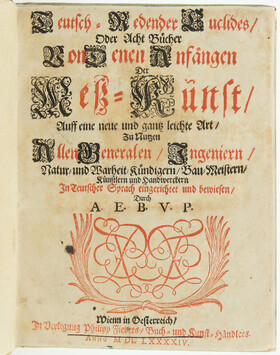 Teutsch-Redender Euclides/
Oder Acht Bücher
Von Denen Anfängen
Der
Meß-Künst/
Auff eine neue und gantz leichte Art/
Zu Nutzen
Allen Generalen/ Ingeniern/
Natur- und Warheit-Kündigern/ Bau-Meistern/
Künstlern und Handwerckern
In Teutscher Sprach eingerichtet und bewiesen/
Durch
A. E. B. V. P.
Wienn in Oesterreich/
In Verlegung Philipp Fievets/ Buch- und Kunst-Händlers.
Anno M DC LXXXXIV.